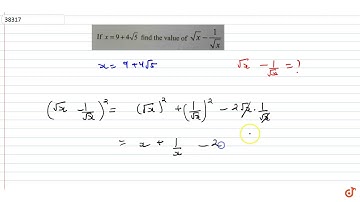 38317
If x = 9 + 4√5 find the value of √x − 1/√x
x = 9 + 4√5 √x − 1/√x = ?
(√x − 1/√x)² = (√x)² + (1/√x)² − 2√x · 1/√x
= x + 1/x − 2